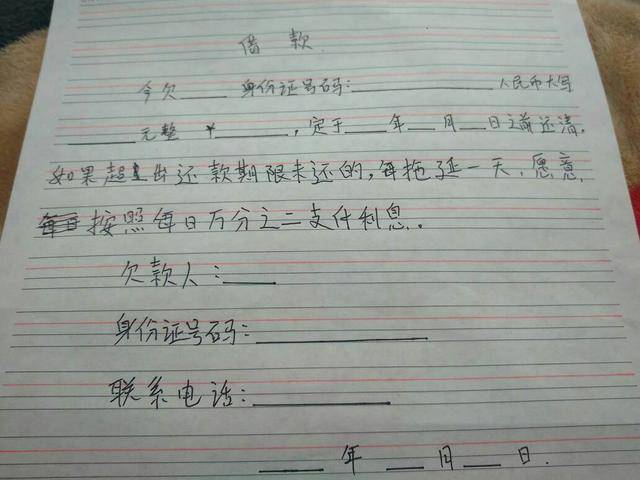 借款
今欠____ 身份证号码:____________人民币大写
____元整 ¥______,定于____年__月__日之前还清.
如果超出还款期限未还的,每拖延一天,愿意
按照每日万分之二支付利息.
欠款人:____
身份证号码:____________
联系电话:__________
____年__月__日.